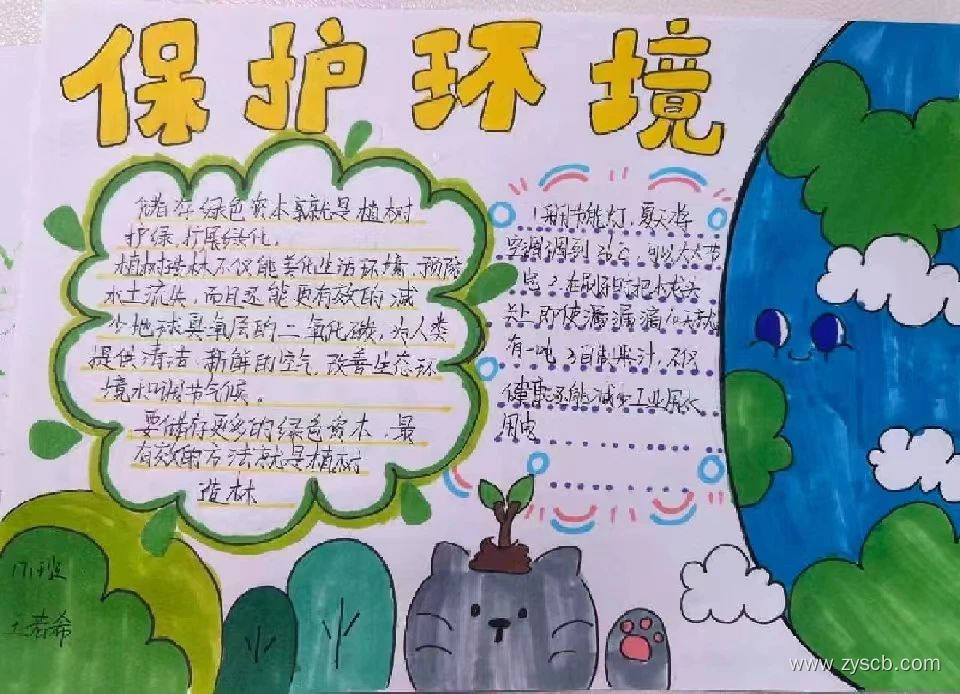 保护环境
储存绿色资本就是植树
护绿,扩展绿化。
植树造林不仅能美化生活环境,预防
水土流失,而且还能更有效的减
少地球臭氧层的二氧化碳,为人类
提供清洁、新鲜的空气,改善生态环
境和调节气候。
要储存更多的绿色资本,最
有效的方法就是植树
造林
1 采用节能灯,夏天将
空调调到26℃,可以大大节
电 2 在刷牙时把水龙头
关上 即使滴漏滴
有一吨,3 自制果汁,不仅
健康还能减少工业用水
用电
171班
王若希
www.zyscb.com